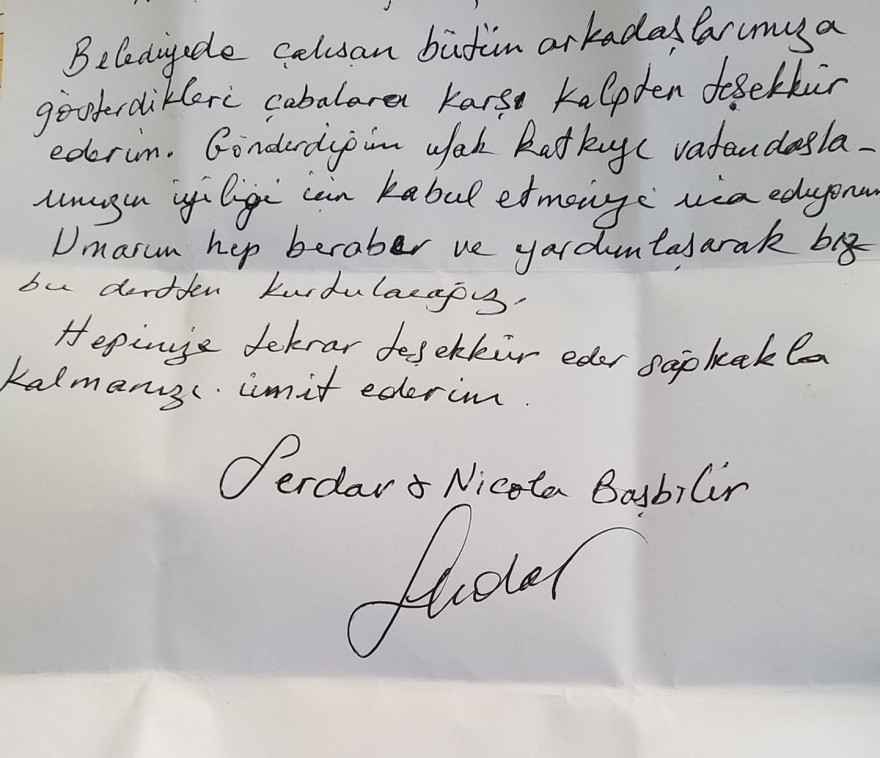 Belediyede çalısan bütün arkadaşlarımıza
gösterdikleri çabalara karşı kalpten teşekkür
ederim. Gönderdiğim ufak katkıyı vatandasla-
rımızın iyiligi icin kabul etmenizi rica ediyorum
Umarım hep beraber ve yardımlaşarak biz
bu dertten kurtulacağız.
Hepinize tekrar teşekkür eder sağlıkakla
kalmanızı ümit ederim.
Serdar & Nicola Başbilir
Serdar